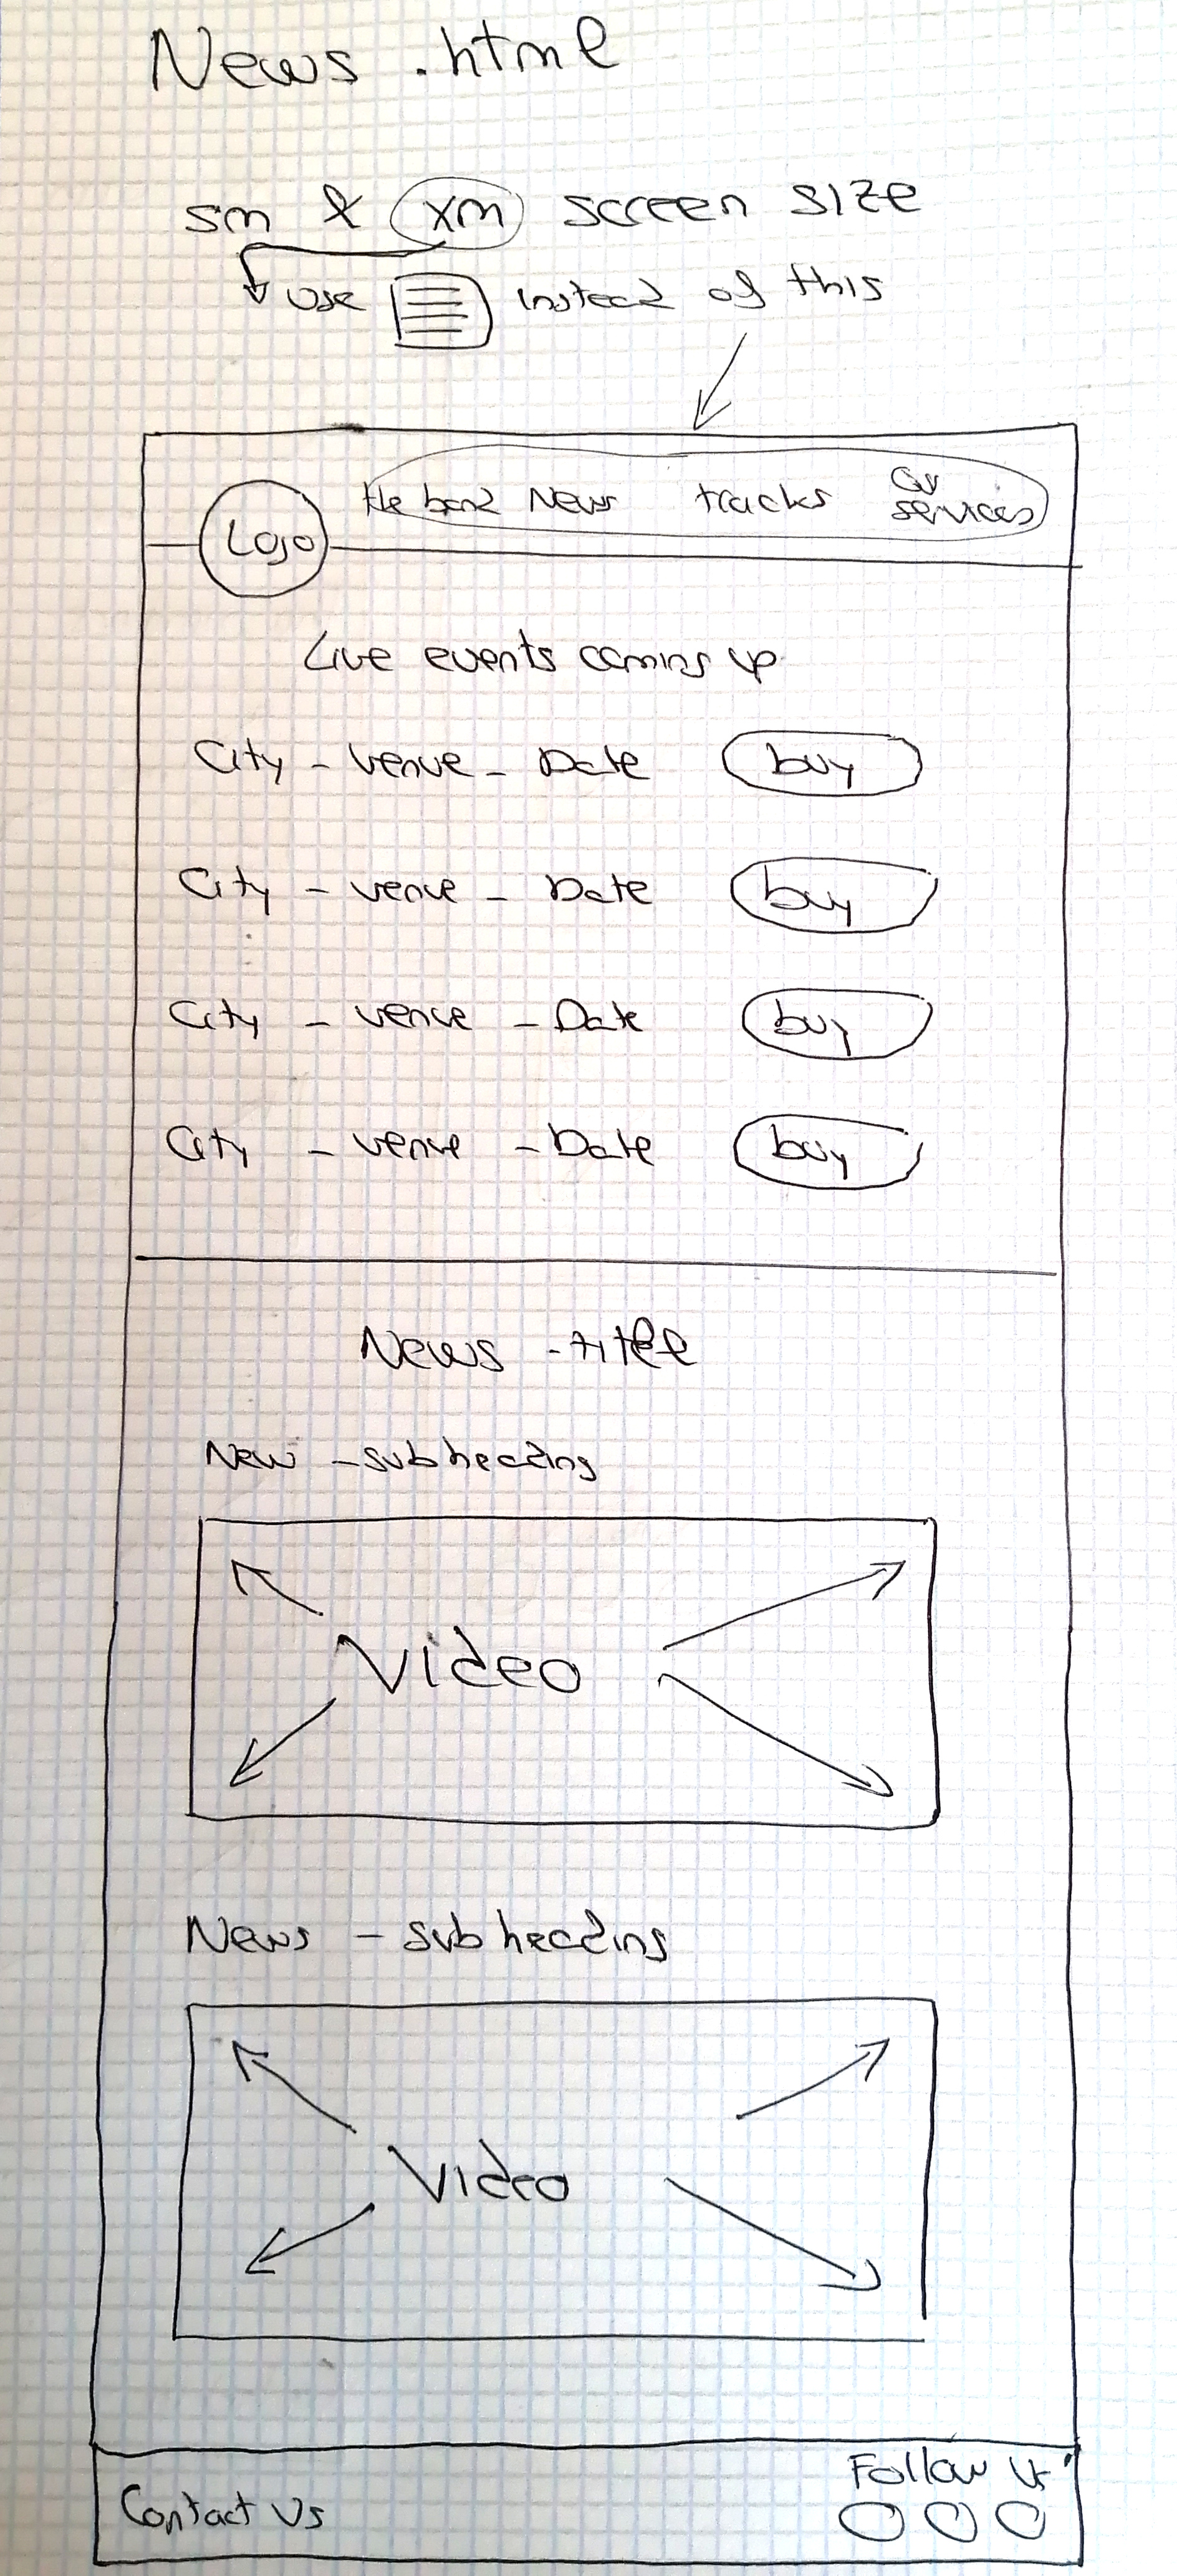 News .html
sm & xm screen size
use instead of this
the band News tracks our services
Logo
Live events coming up
City - venue - Date buy
City - venue - Date buy
City - venue - Date buy
City - venue - Date buy
News - title
New - subheading
Video
News - subheading
Video
Follow Us
Contact Us